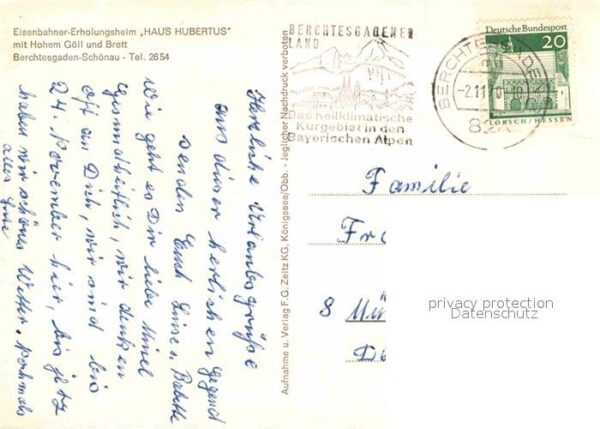 Eisenbahner-Erholungsheim „HAUS HUBERTUS"
mit Hohem Göll und Brett
Berchtesgaden-Schönau - Tel. 2654
Herzliche Urlaubsgrüße
aus dieser herrlichen Gegend
senden Euch Luise u. Babette
Wie geht es Dir liebe
gesundheitlich, wir denken
oft an Dich, wir sind bis
24. November hier, bis jetzt
haben wir schönes Wetter. Nochmals
alles Gute
Aufnahme u. Verlag F.G. Zeitz KG, Königssee/Obb. - Jeglicher Nachdruck verboten
BERCHTESGADENER
LAND
Das heilklimatische
Kurgebiet in den
Bayerischen Alpen
BERCHTESGADEN
-2.11
Deutsche Bundespost
20
LORSCH/HESSEN
Familie
Fr
8 Mün
privacy protection
Datenschutz